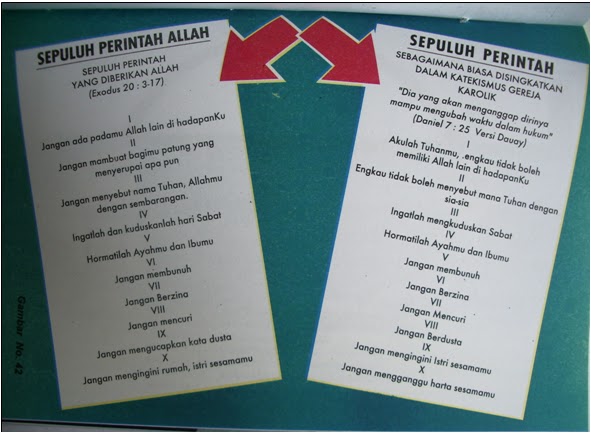 SEPULUH PERINTAH ALLAH
SEPULUH PERINTAH
YANG DIBERIKAN ALLAH
(Exodus 20 : 3-17)
I
Jangan ada padamu Allah lain di hadapanKu
II
Jangan mambuat bagimu patung yang
menyerupai apa pun
III
Jangan menyebut nama Tuhan, Allahmu
dengan sembarangan.
IV
Ingatlah dan kuduskanlah hari Sabat
V
Hormatilah Ayahmu dan Ibumu
VI
Jangan membunuh
VII
Jangan Berzina
VIII
Jangan mencuri
IX
Jangan mengucapkan kata dusta
X
Jangan mengingini rumah, istri sesamamu
Gambar No. 42
SEPULUH PERINTAH
SEBAGAIMANA BIASA DISINGKATKAN
DALAM KATEKISMUS GEREJA
KAROLIK
"Dia yang akan menganggap dirinya
mampu mengubah waktu dalam hukum"
(Daniel 7 : 25 Versi Dauay)
I
Akulah Tuhanmu, engkau tidak boleh
memiliki Allah lain di hadapanKu
II
Engkau tidak boleh menyebut mana Tuhan dengan
sia-sia
III
Ingatlah mengkuduskan Sabat
IV
Hormatilah Ayahmu dan Ibumu
V
Jangan membunuh
VI
Jangan Berzina
VII
Jangan Mencuri
VIII
Jangan Berdusta
IX
Jangan mengingini Istri sesamamu
X
Jangan mengganggu harta sesamamu